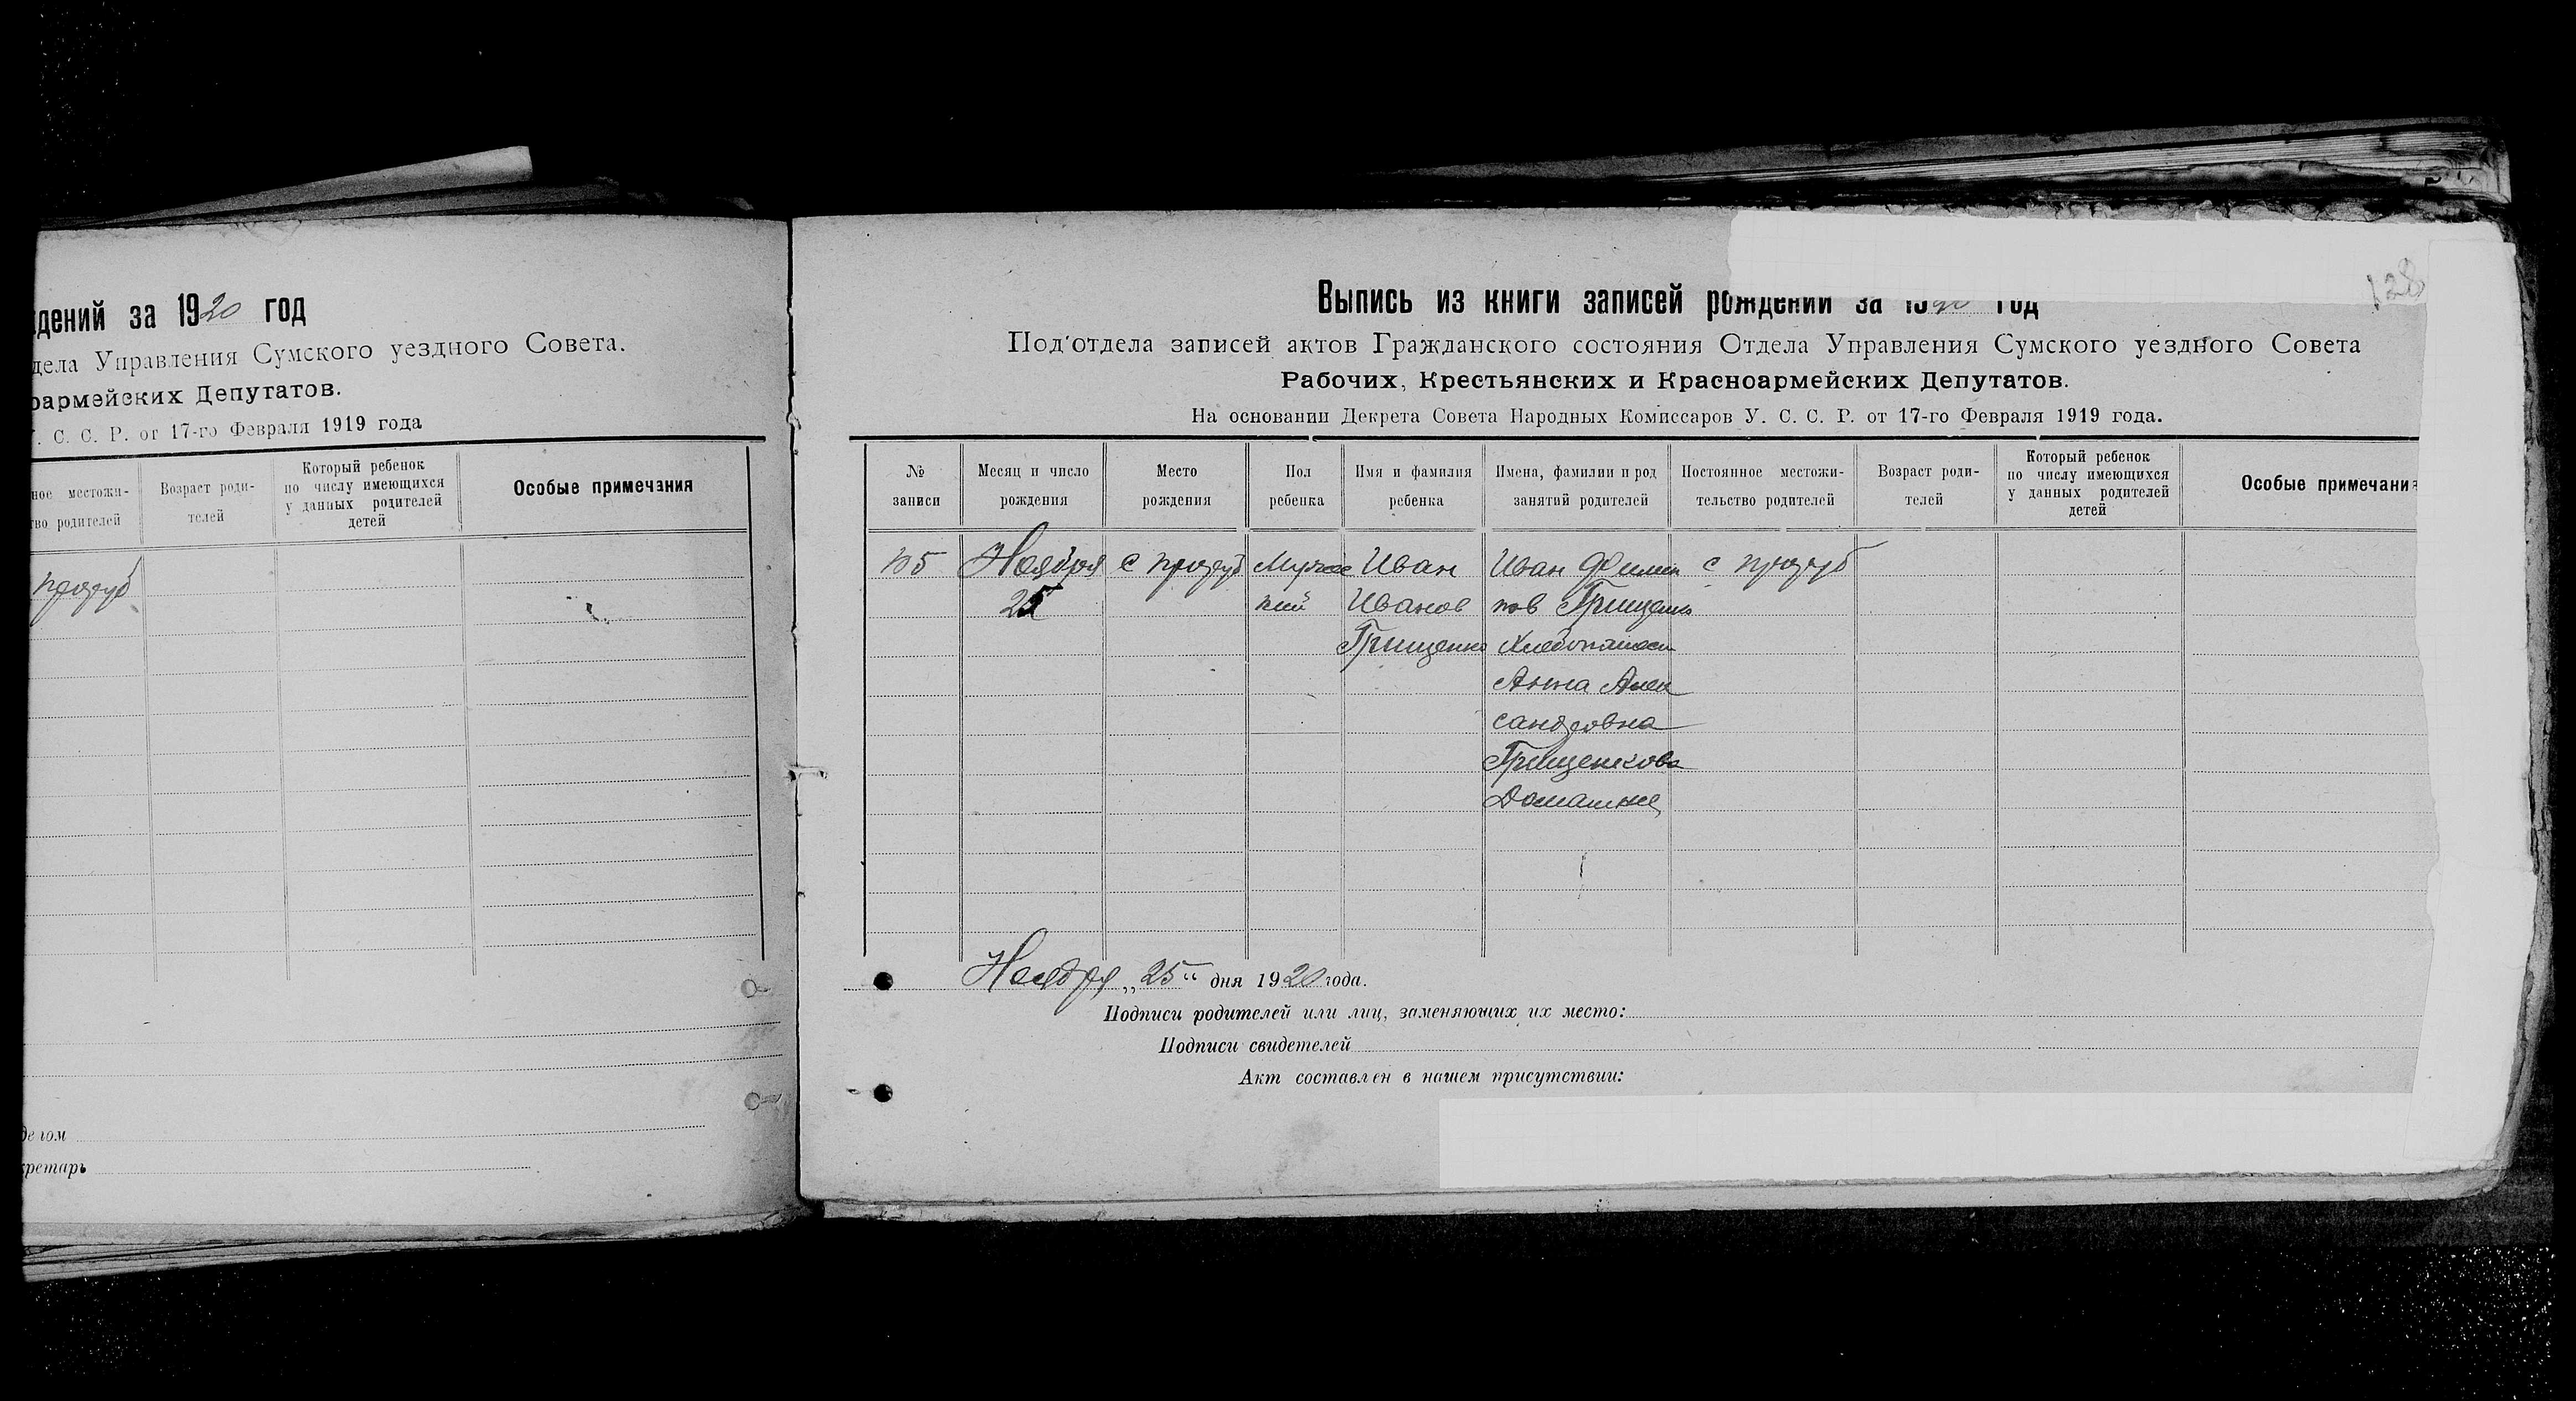 дений за 1920 год
дела Управления Сумского уездного Совета.
оармейских Депутатов.
У. С. С. Р. от 17-го Февраля 1919 года
ное местожи-
тво родителей
Возраст роди-
телей
Который ребенок
по числу имеющихся
у данных родителей
детей
Особые примечания
делом
кретарь
128
Выпись из книги записей рождений за 1920 год
Под'отдела записей актов Гражданского состояния Отдела Управления Сумского уездного Совета
Рабочих, Крестьянских и Красноармейских Депутатов.
На основании Декрета Совета Народных Комиссаров У. С. С. Р. от 17-го Февраля 1919 года.
№
записи
Месяц и число
рождения
Место
рождения
Пол
ребенка
Имя и фамилия
ребенка
Имена, фамилии и род
занятий родителей
Постоянное местожи-
тельство родителей
Возраст роди-
телей
Который ребенок
по числу имеющихся
у данных родителей
детей
Особые примечания
Ноября
25
с
Мужс
кий
Иван
Иванов
Грищенко
Иван Филип
пов Грищенко
Хлебопашест
Анна Алек
сандровна
Грищенкова
Домашне
с
Ноября „25“ дня 1920 года.
Подписи родителей или лиц, заменяющих их место:
Подписи свидетелей
Акт составлен в нашем присутствии: